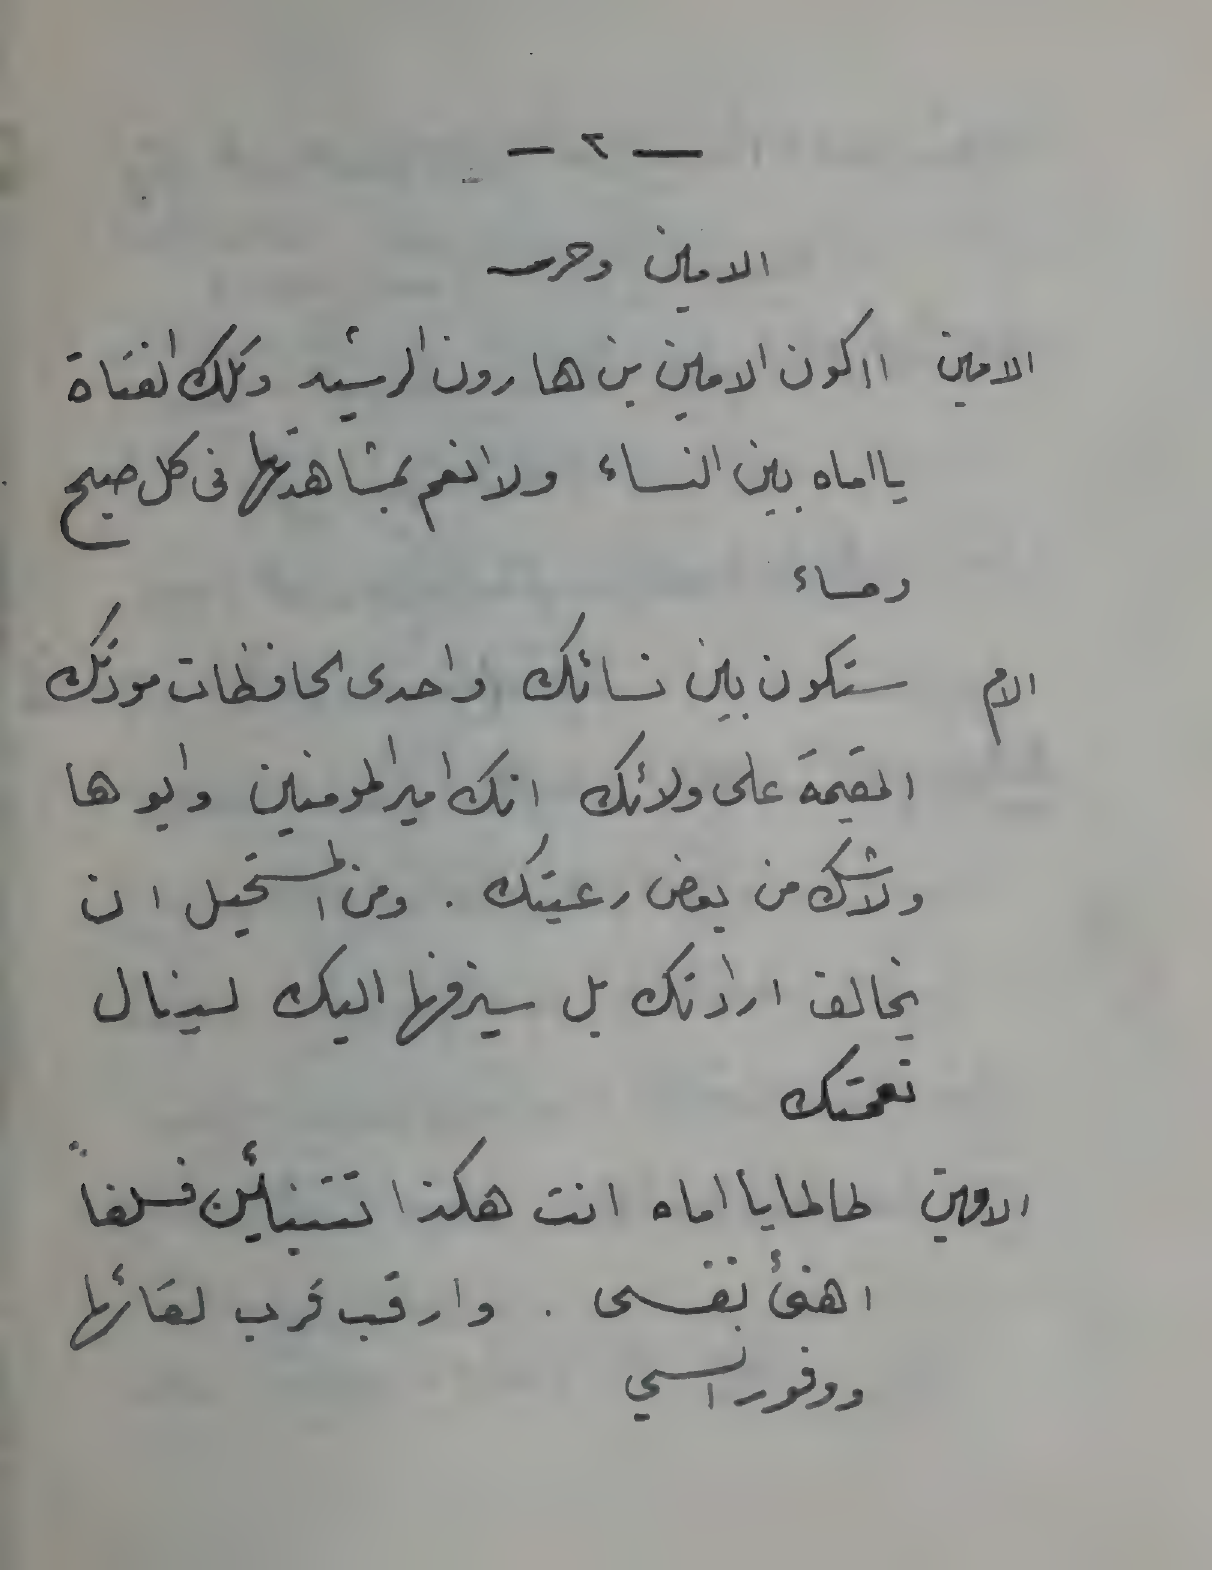 — ٢ —
الامين وحرمه
الامين ااكون الامين بن هارون الرشيد وتلك الفتاة
يااماه بين النساء ولا انعم بمشاهدتها فى كل صبح
ومساء
الام ستكون بين نسائك واحدى الحافظات مودتك
المقيمة على ولائك انك امير المومنين وابوها
ولاشك من بعض رعيتك . ومن المستحيل ان
يخالف ارادتك بل سيزفها اليك لينال
نعمتك
الامين طالما يا اماه انت هكذا تتنبأين فسلفاً
اهنئ نفسى . وارقب قرب لقائها
ووفور انسي